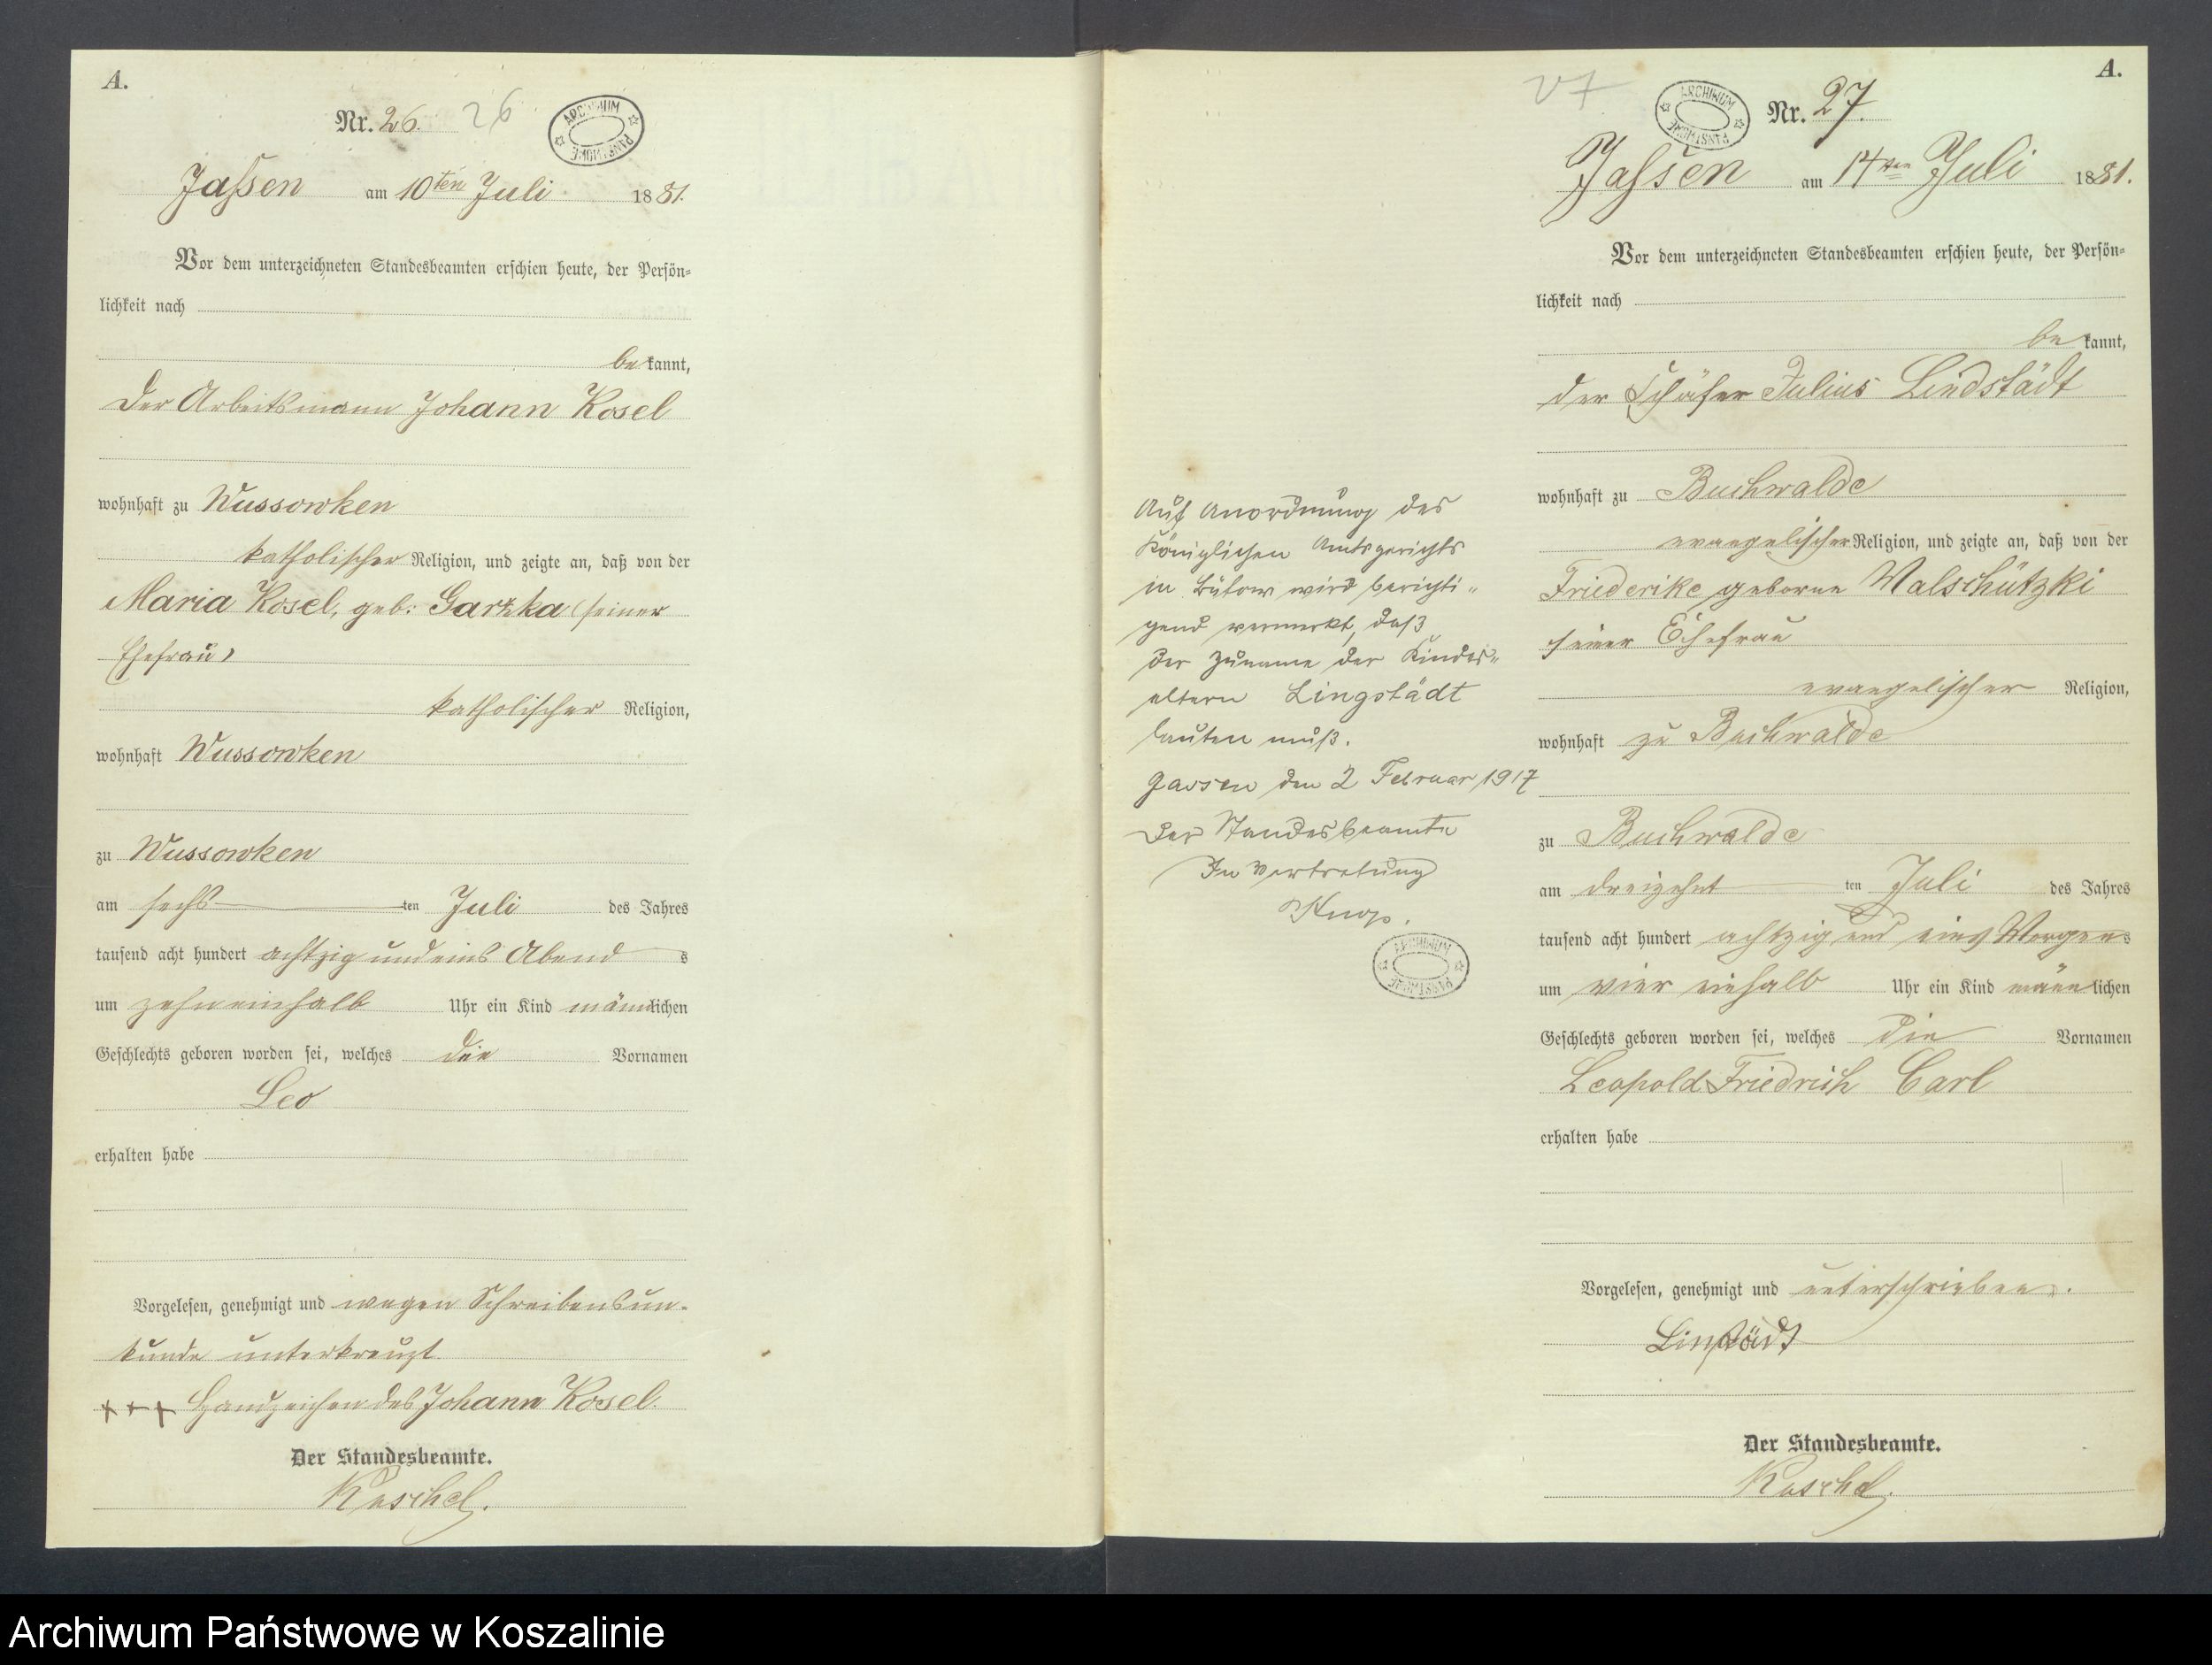 A.
Nr. 26. 26
ARCHIWUM PAŃSTWOWE
Jaßen am 10ten Juli 1881.
Vor dem unterzeichneten Standesbeamten erschien heute, der Persön-
lichkeit nach
bekannt,
der Arbeitsmann Johann Kosel
wohnhaft zu Wussowken
katholischer Religion, und zeigte an, daß von der
Maria Kosel, geb: Garzka (seiner
Ehefrau)
katholischer Religion,
wohnhaft Wussowken
zu Wussowken
am sechsten Juli des Jahres
tausend acht hundert achtzig und eins Abends
um zehn einhalb Uhr ein Kind männlichen
Geschlechts geboren worden sei, welches die Vornamen
Leo
erhalten habe
Vorgelesen, genehmigt und wegen Schreibensun-
kunde unterkreuzt
+++ Handzeichen des Johann Kosel.
Der Standesbeamte.
Kaschel.
Auf Anordnung des
Königlichen Amtsgerichts
in Bütow wird berichti-
gend vermerkt, daß
der Zuname der Kindes-
eltern Lingstädt
lauten muß.
Jassen den 2 Februar 1917
Der Standesbeamte
In Vertretung
Knop.
ARCHIWUM PAŃSTWOWE
A.
27 Nr. 27.
ARCHIWUM PAŃSTWOWE
Jaßen am 14ten Juli 1881.
Vor dem unterzeichneten Standesbeamten erschien heute, der Persön-
lichkeit nach
bekannt,
der Schäfer Julius Lindstädt
wohnhaft zu Buchwalde
evangelischer Religion, und zeigte an, daß von der
Friederike geborne Walschützki
seiner Ehefrau
evangelischer Religion,
wohnhaft zu Buchwalde
zu Buchwalde
am dreizehnten Juli des Jahres
tausend acht hundert achtzig und eins Morgens
um vier einhalb Uhr ein Kind männlichen
Geschlechts geboren worden sei, welches die Vornamen
Leopold Friedrich Carl
erhalten habe
Vorgelesen, genehmigt und unterschrieben.
Der Standesbeamte.
Kaschel.
Archiwum Państwowe w Koszalinie